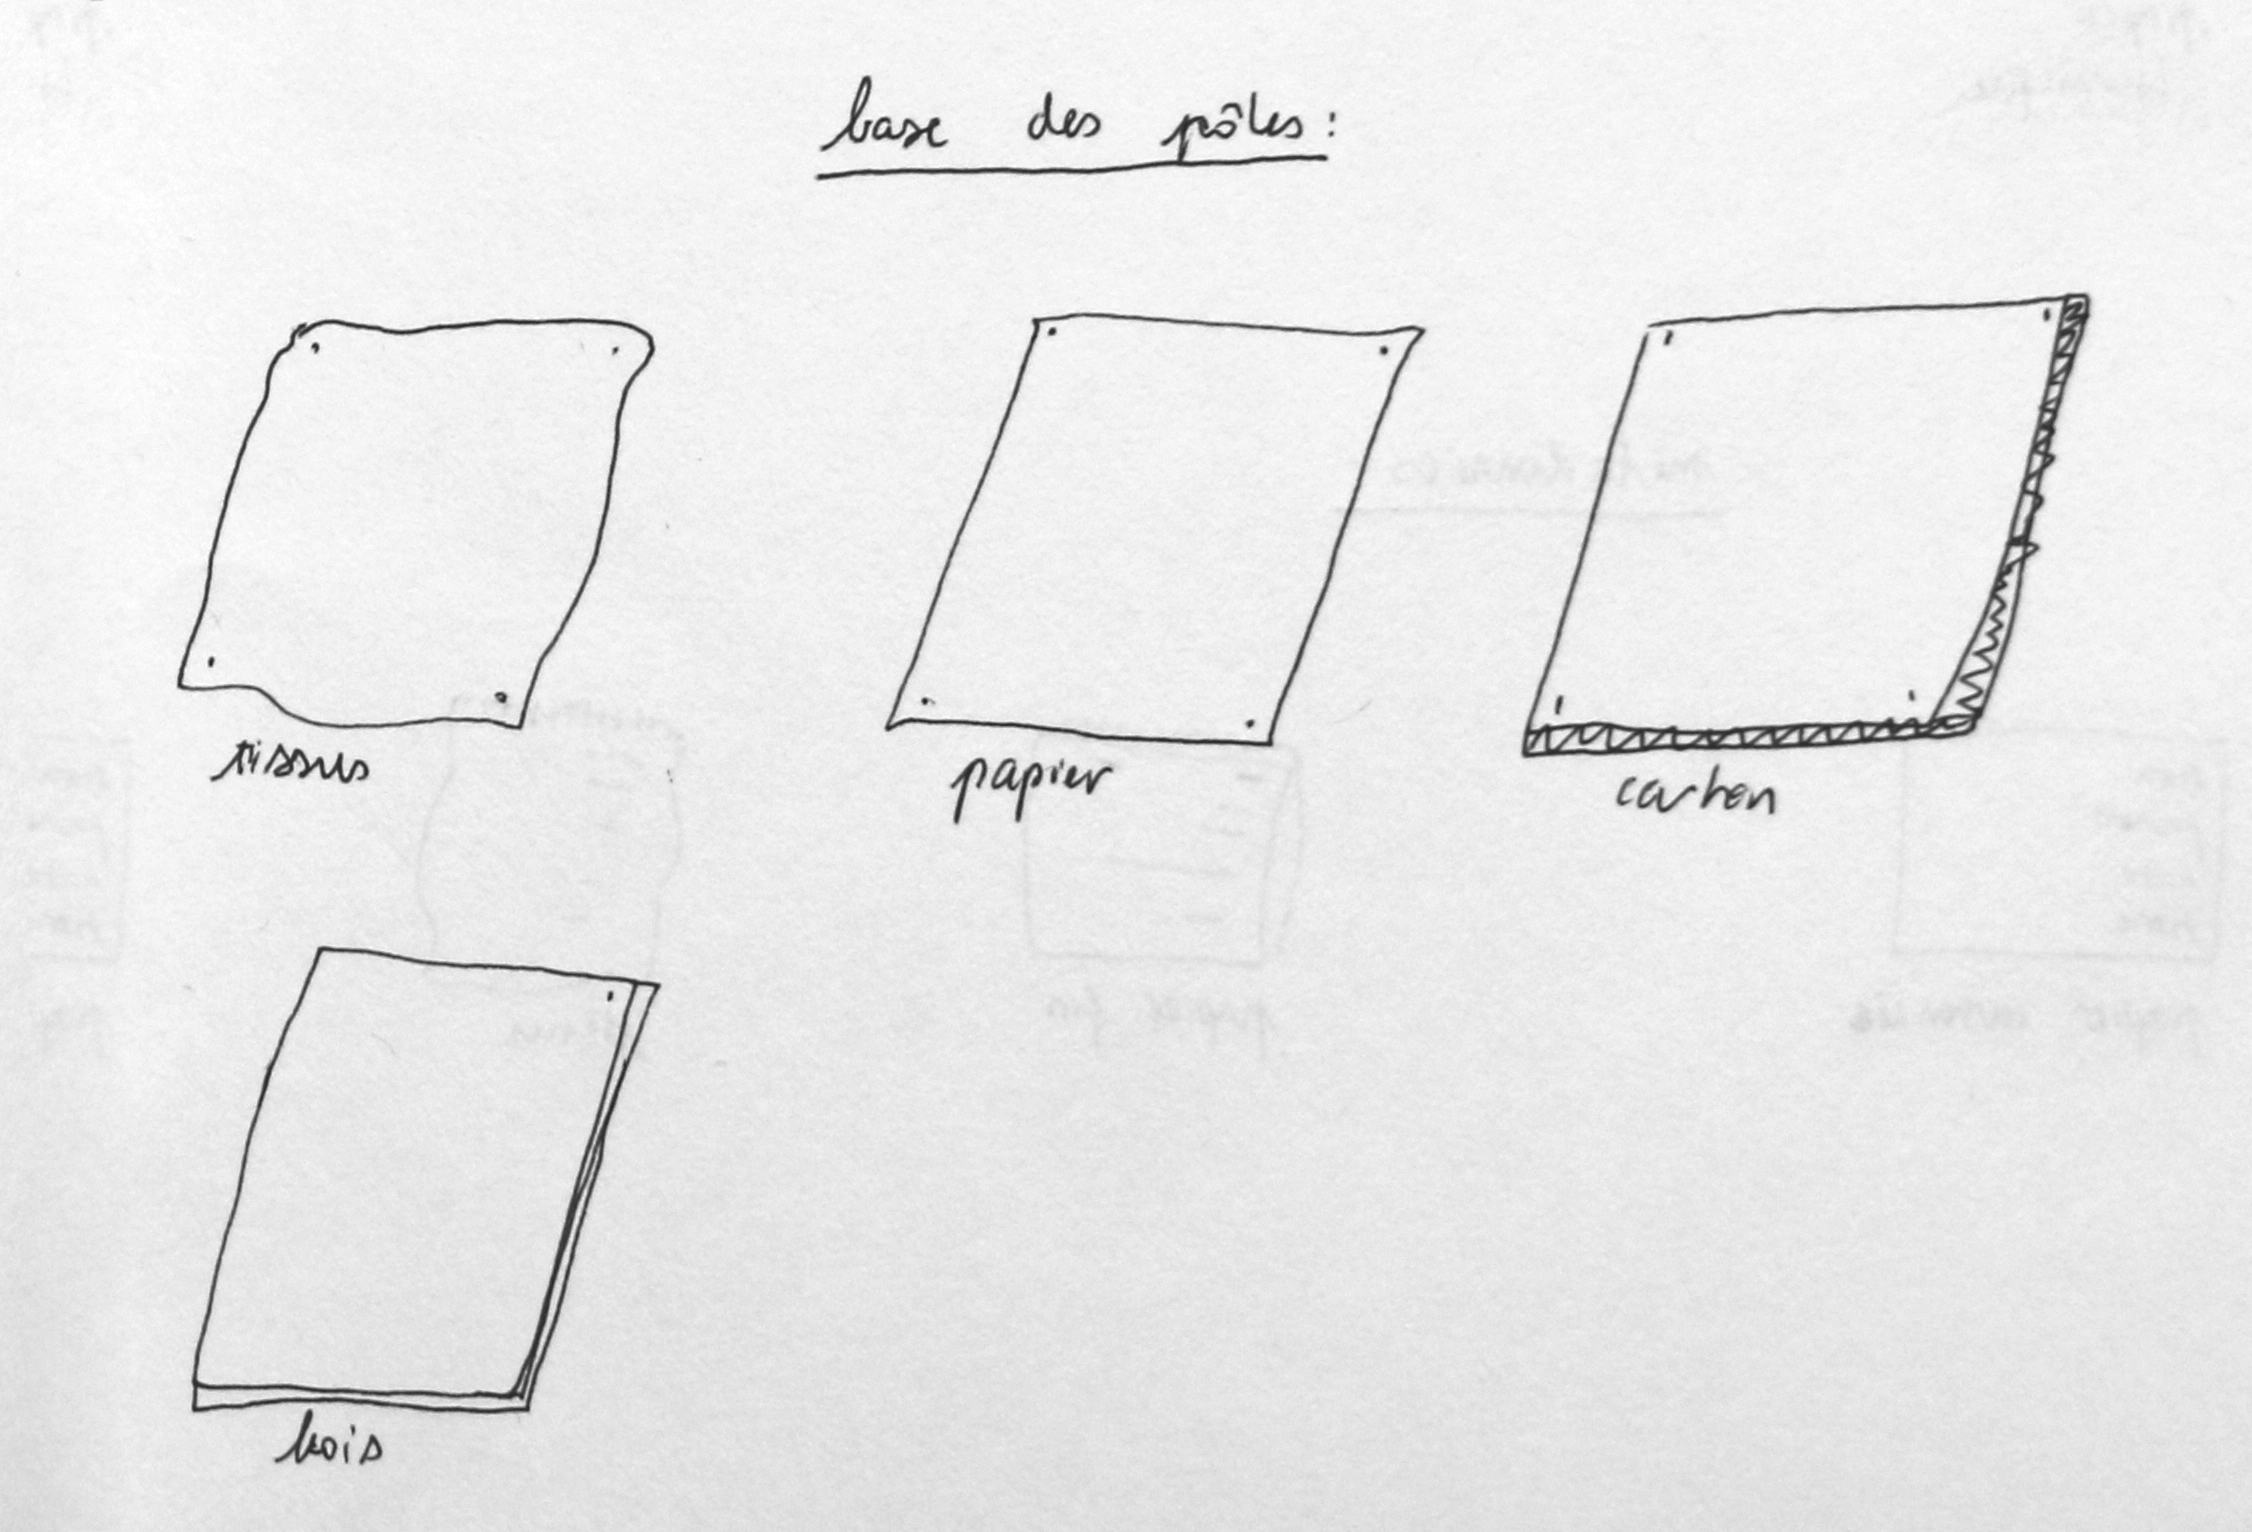 base des pôles :
tissus
papier
carton
bois